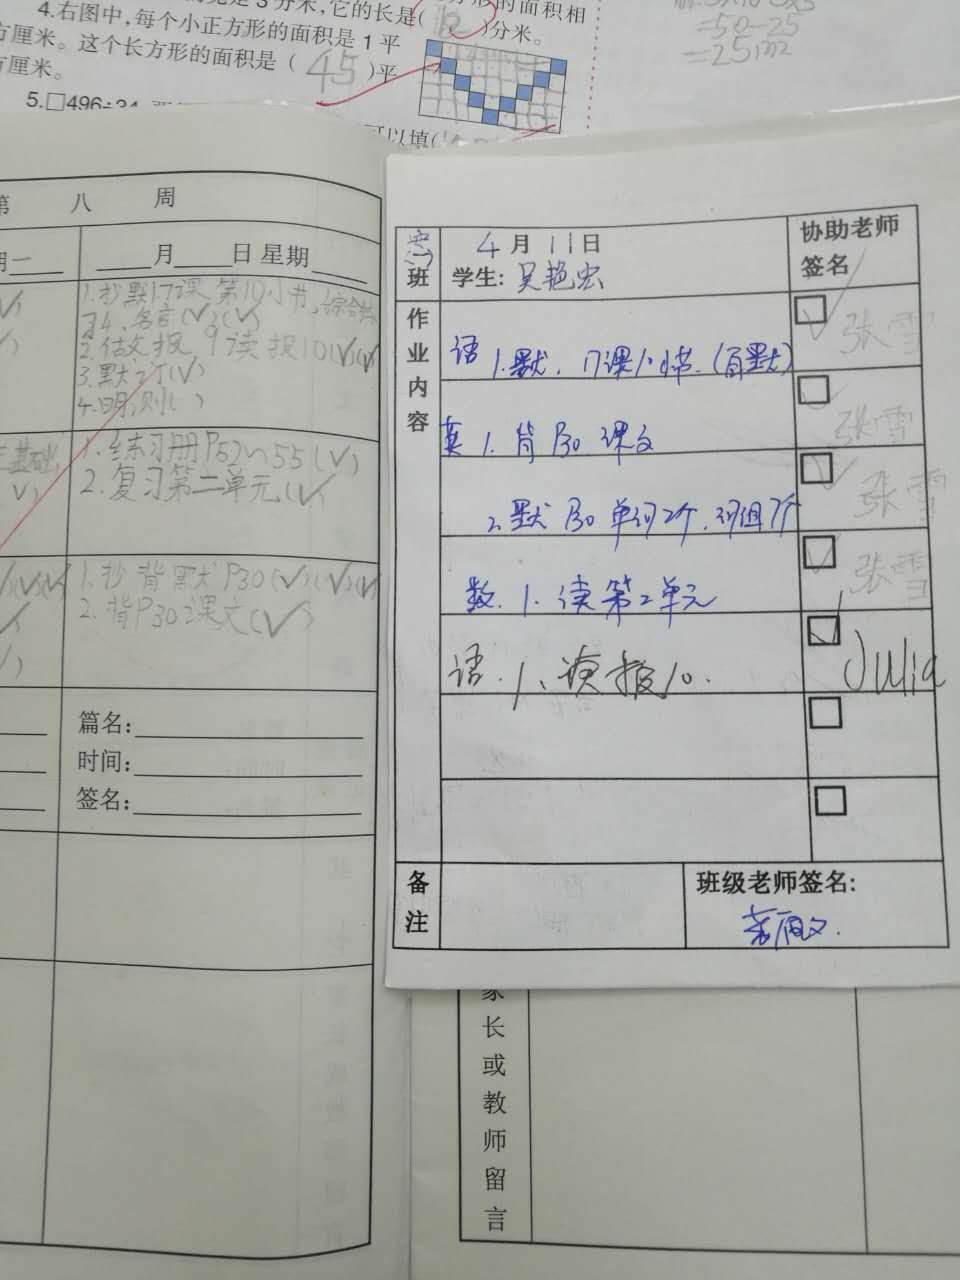 4.右图中,每个小正方形的面积是1平
方厘米。这个长方形的面积是(45)平
方厘米。
分米。
5.□496÷34
可以填(
=50-25
=25m²
第 八 周
期一
月 日 星期
1.抄默17课第10小节,综合
2.作文报9读报10(√)(√
3.默2丁(√)
4.明,则( )
1.练习册P52~55(√)
2.复习第二单元(√
1.抄背默P30(√)(√)(√
2.背P30 2课文(√)
篇名:
时间:
签名:
班
4月11日
学生:吴艳宏
协助老师
签名
作业内容
语 1.默,17课10小节.(百默)
张雪
英 1.背P30课文
张雪
2.默P30单词2个,词组7个
张雪
数.1.读第2单元
张雪
语.1、读报10.
Julia
备注
班级老师签名:
家长或教师留言